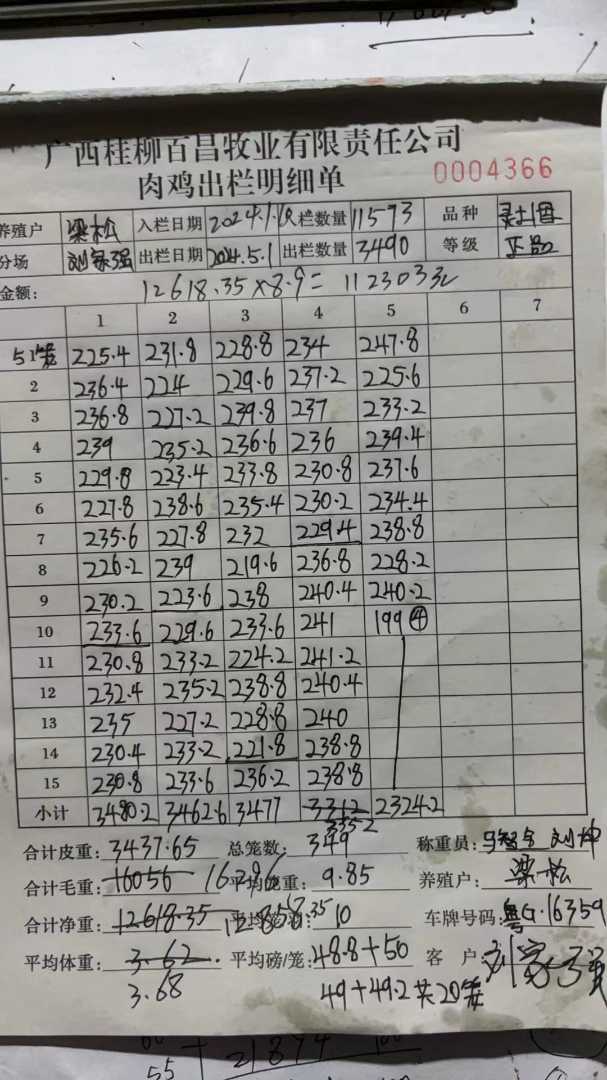 广西桂柳百昌牧业有限责任公司
肉鸡出栏明细单 0004366
养殖户 梁松 入栏日期 2024.1. 栏数量 11573 品种 灵土1号
分场 刘家强 出栏日期 2024.5.1 出栏数量 3490 等级 正品
金额: 12618.35×8.9= 112303元
1 2 3 4 5 6 7
5只笼 225.4 231.8 228.8 234 247.8
2 236.4 224 229.6 237.2 225.6
3 236.8 227.2 239.8 237 233.2
4 239 235.2 236.6 236 239.4
5 229.8 223.4 233.8 230.8 237.6
6 227.8 238.6 235.4 230.2 234.4
7 235.6 227.8 232 229.4 238.8
8 226.2 239 219.6 236.8 228.2
9 230.2 223.6 238 240.4 240.2
10 233.6 229.6 233.6 241 199 ④
11 230.8 233.2 224.2 241.2
12 232.4 235.2 238.8 240.4
13 235 227.2 228.8 240
14 230.4 233.2 221.8 238.8
15 230.8 233.6 236.2 238.8
小计 3480.2 3462.6 3477 3312 2324.2
3552
合计皮重: 3437.65 总笼数: 349 称重员: 刘坤
合计毛重: 16056 16296 平均皮重: 9.85 养殖户: 梁松
合计净重: 12618.35 12858.35 10 车牌号码: 粤G·16359
平均体重: 3.62 平均磅/笼: 48.8+50 客户:
3.68 49+49.2共20笼
55 21894 100